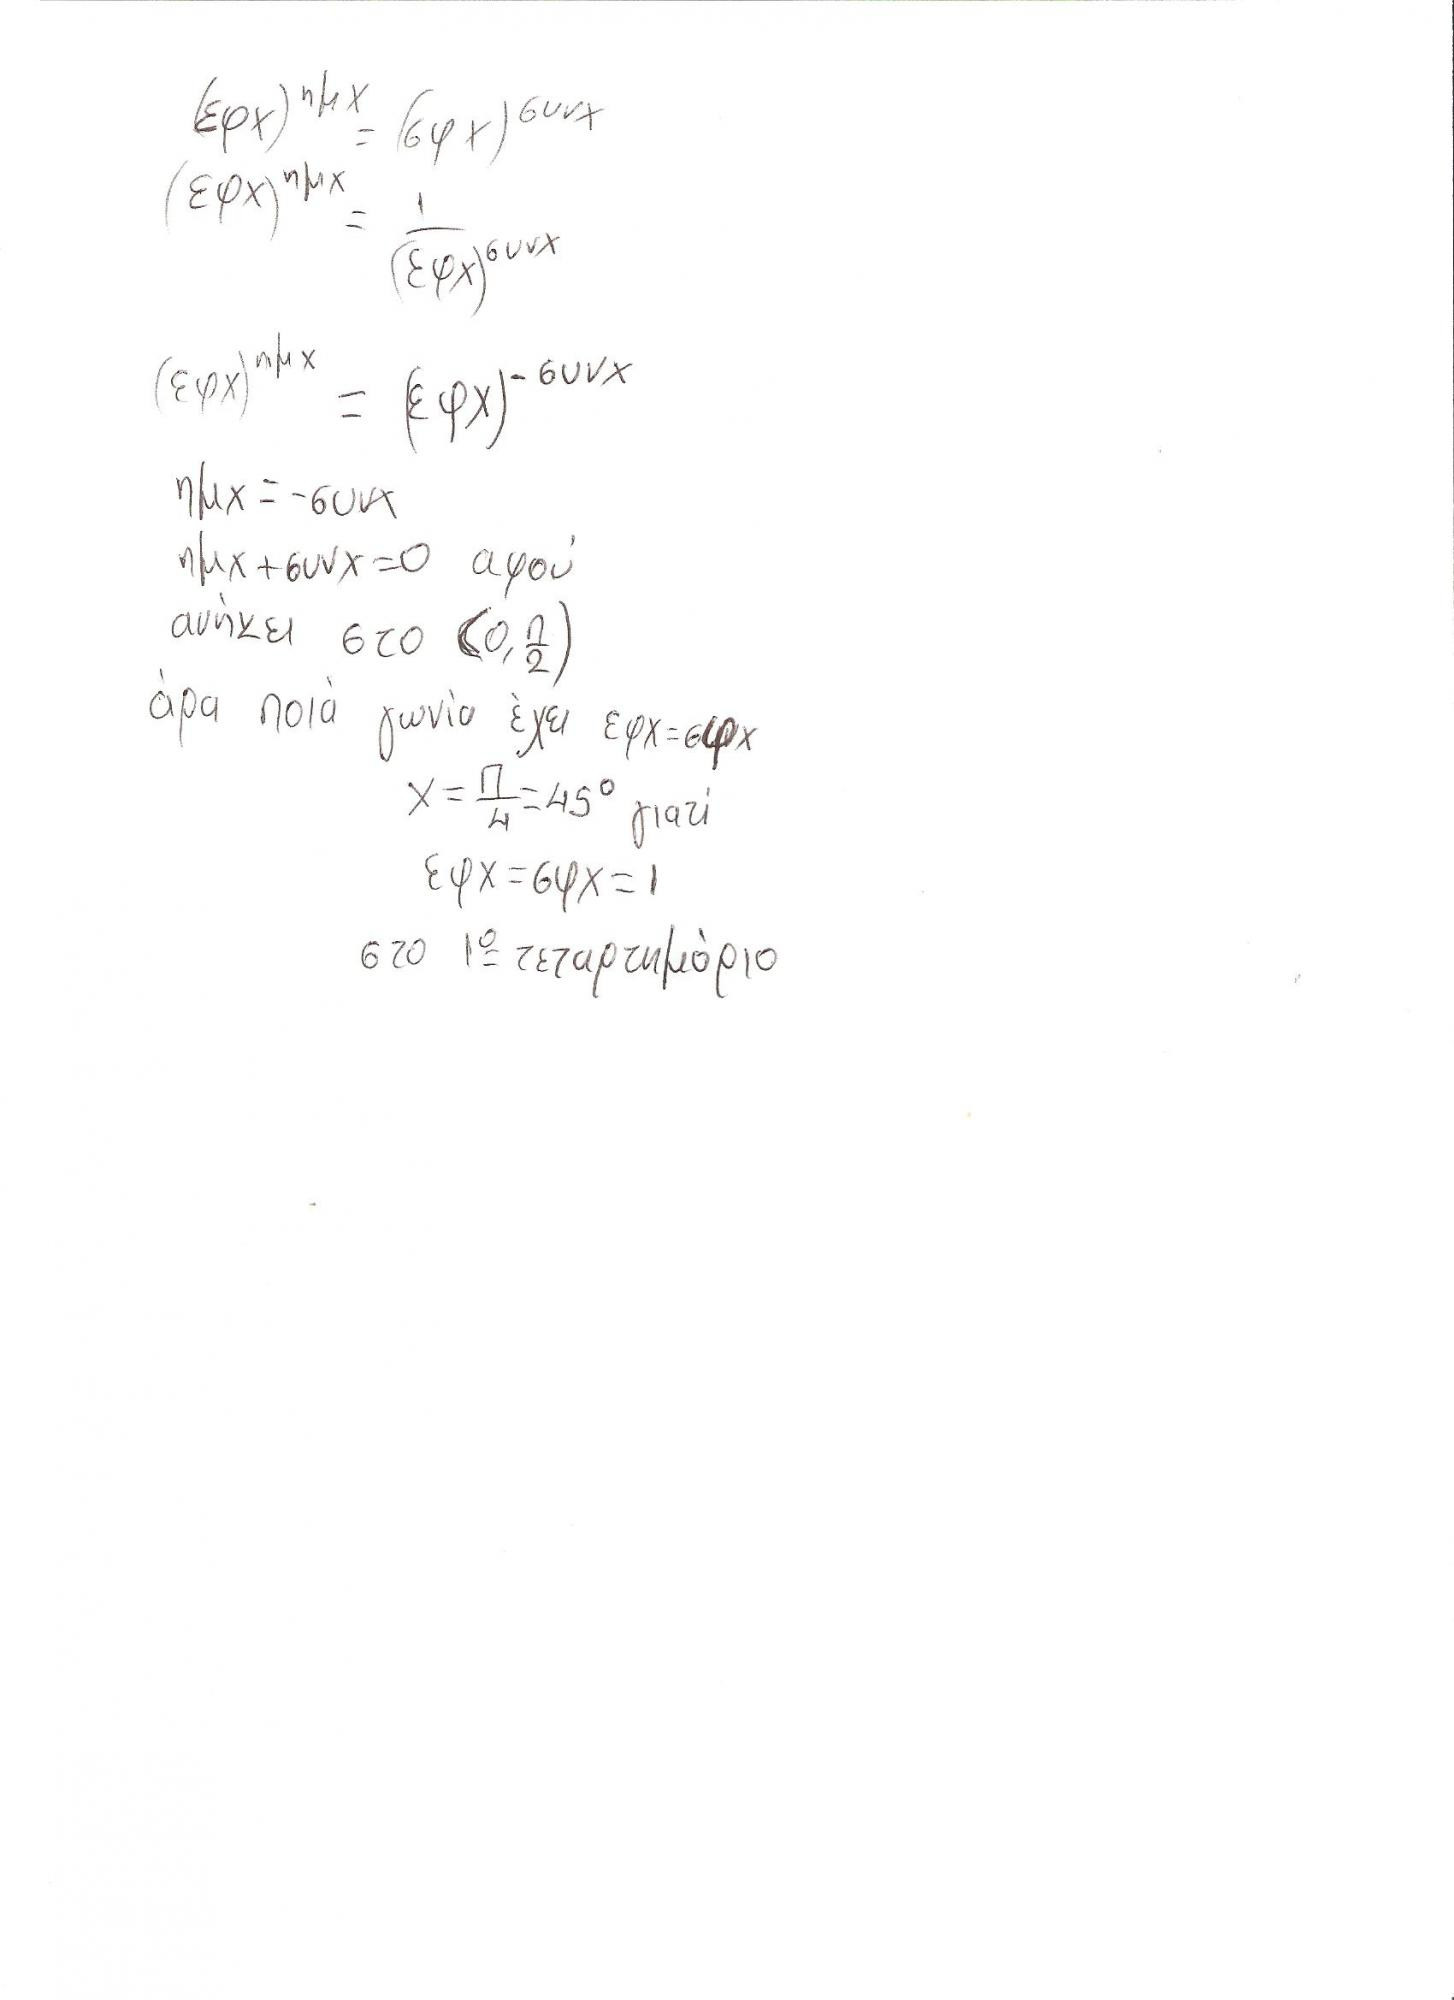 (εφx)^ημx = (σφx)^συνx
(εφx)^ημx = 1/(εφx)^συνx
(εφx)^ημx = (εφx)^-συνx
ημx = -συνx
ημx + συνx = 0 αφού
ανήκει στο (0, π/2)
άρα ποιά γωνία έχει εφx = σφx
x = Π/4 = 45° γιατί
εφx = σφx = 1
στο 1º τεταρτημόριο